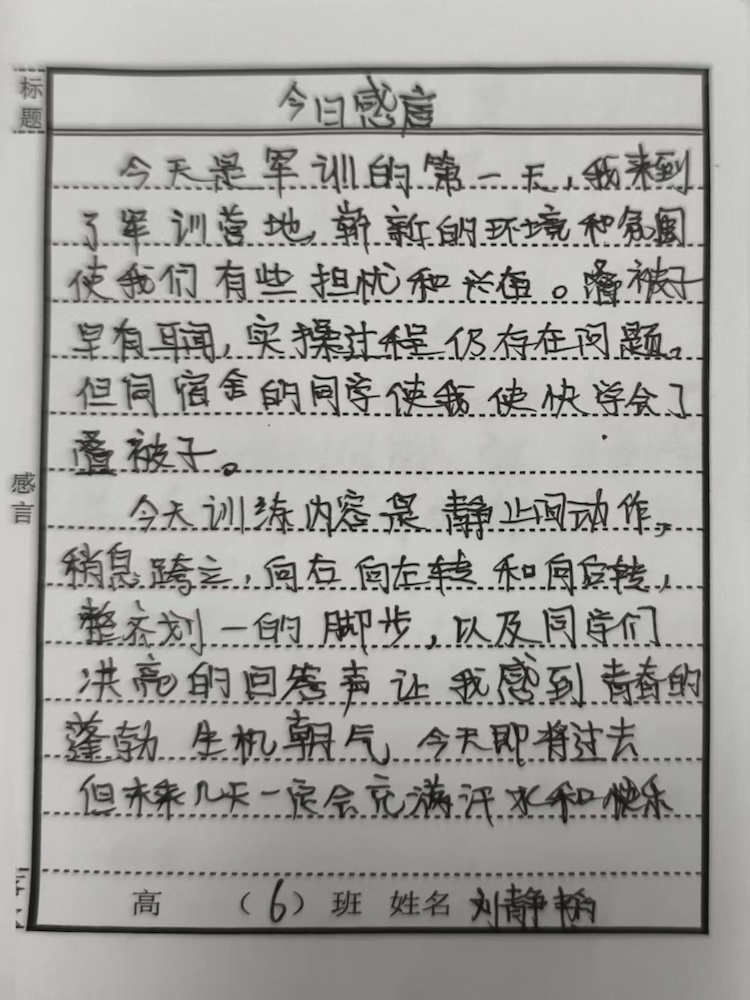 标题
今日感言
今天是军训的第一天,我来到
了军训营地,崭新的环境和氛围
使我们有些担忧和兴奋。叠被子
早有耳闻,实操过程仍存在问题。
但同宿舍的同学使我使快学会了
叠被子。
感言
今天训练内容是静止间动作,
稍息跨立,向右向左转和向后转,
整齐划一的脚步,以及同学们
洪亮的回答声让我感到青春的
蓬勃生机朝气 今天即将过去
但未来几天一定会充满汗水和快乐
高 (6)班 姓名 刘静